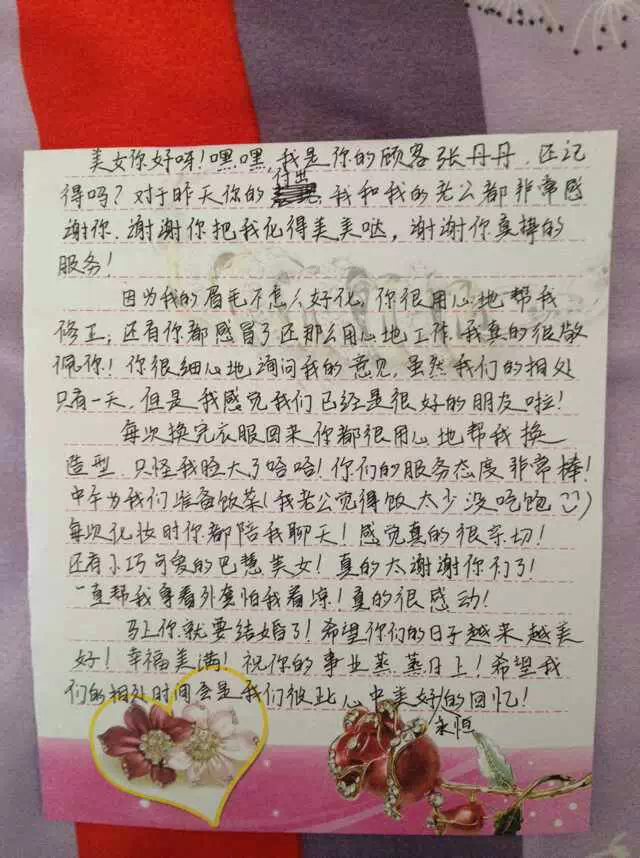 美女你好呀！嘿嘿，我是你的顾客张丹丹，还记
得吗？对于昨天你的付出，我和我的老公都非常感
谢你．谢谢你把我化得美美哒，谢谢你真棒的
服务！
因为我的眉毛不怎么好化，你很用心地帮我
修正；还有你都感冒了还那么用心地工作，我真的很敬
佩你！你很细心地询问我的意见，虽然我们的相处
只有一天，但是我感觉我们已经是很好的朋友啦！
每次换完衣服回来你都很用心地帮我换
造型，只怪我脸大了哈哈！你们的服务态度非常棒！
中午为我们准备饭菜（我老公觉得饭太少没吃饱）
每次化妆时你都陪我聊天！感觉真的很亲切！
还有小巧可爱的巴慧美女！真的太谢谢你们了！
一直帮我穿着外套怕我着凉！真的很感动！
马上你就要结婚了！希望你们的日子越来越美
好！幸福美满！祝你的事业蒸蒸日上！希望我
们的相处时间会是我们彼此心中美好永恒的回忆！